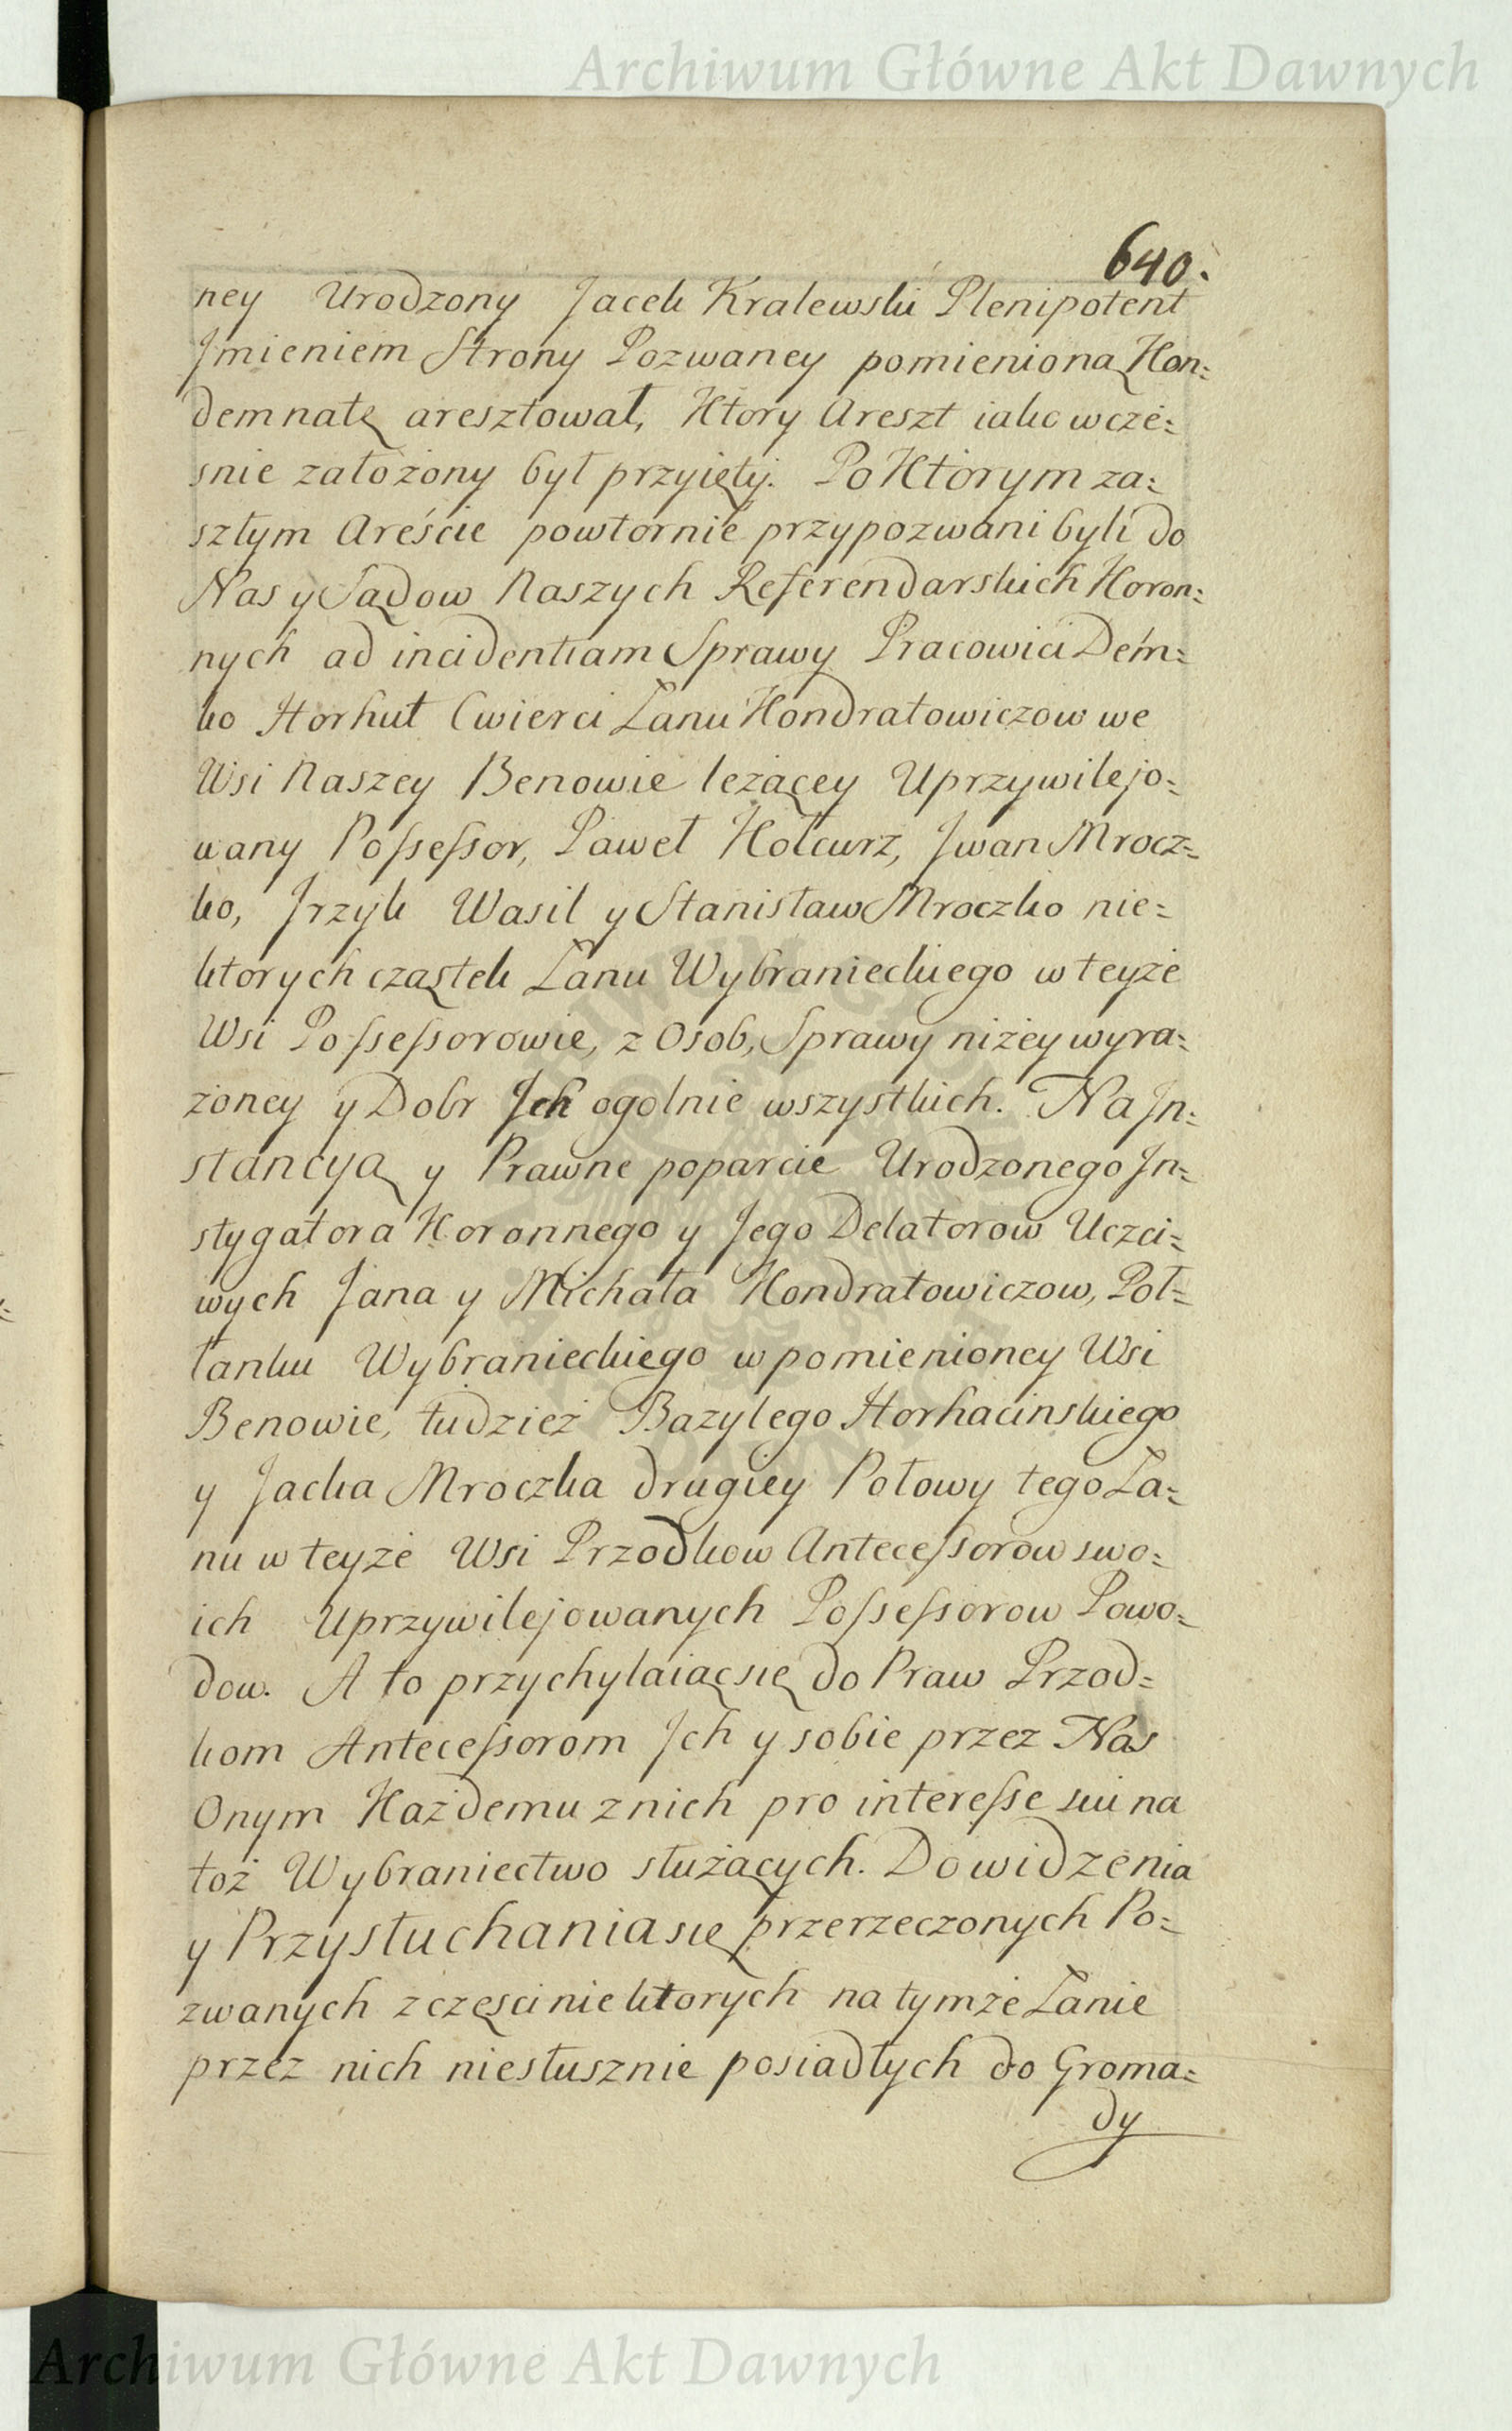 Archiwum Główne Akt Dawnych
640.
ney Urodzony Jacek Kralewski Plenipotent
Jmieniem Strony Pozwaney pomienioną Kon=
demnatę aresztował, Ktory Areszt iako wcze=
snie założony był przyięty. Po Ktorym za=
szłym Areście powtornie przypozwani byli do
Nas y Sądow Naszych Referendarskich Koron=
nych ad incidentiam Sprawy Pracowici Dem=
ko Horhut Cwierci Łanu Kondratowiczow we
Wsi Naszey Benowie leżącey Uprzywilejo=
wany Possessor, Paweł Holcurz, Jwan Mrocz=
ko, Jrzyk Wasil y Stanisław Mroczko nie=
ktorych cząstek Łanu Wybranieckiego w teyże
Wsi Possessorowie, z Osob, Sprawy niżey wyra=
żoney y Dobr Jch ogolnie wszystkich. Na Jn=
stancyą y Prawne poparcie Urodzonego Jn=
stygatora Koronnego y Jego Delatorow Uczci=
wych Jana y Michała Kondratowiczow, Poł=
łanku Wybranieckiego w pomienioney Wsi
Benowie, tudzież Bazylego Horhacinskiego
y Jacka Mroczka drugiey Połowy tego Ła=
nu w teyże Wsi Przodkow Antecessorow swo=
ich Uprzywilejowanych Possessorow Powo=
dow. A to przychylaiąc się do Praw Przod=
kom Antecessorom Jch y sobie przez Nas
Onym Każdemu z nich pro interesse sui na
toż Wybraniectwo służących. Do widzenia
y Przysłuchania się przerzeczonych Po=
zwanych z części niektorych na tymże Łanie
przez nich niesłusznie posiadłych do Groma=
dy
Archiwum Główne Akt Dawnych